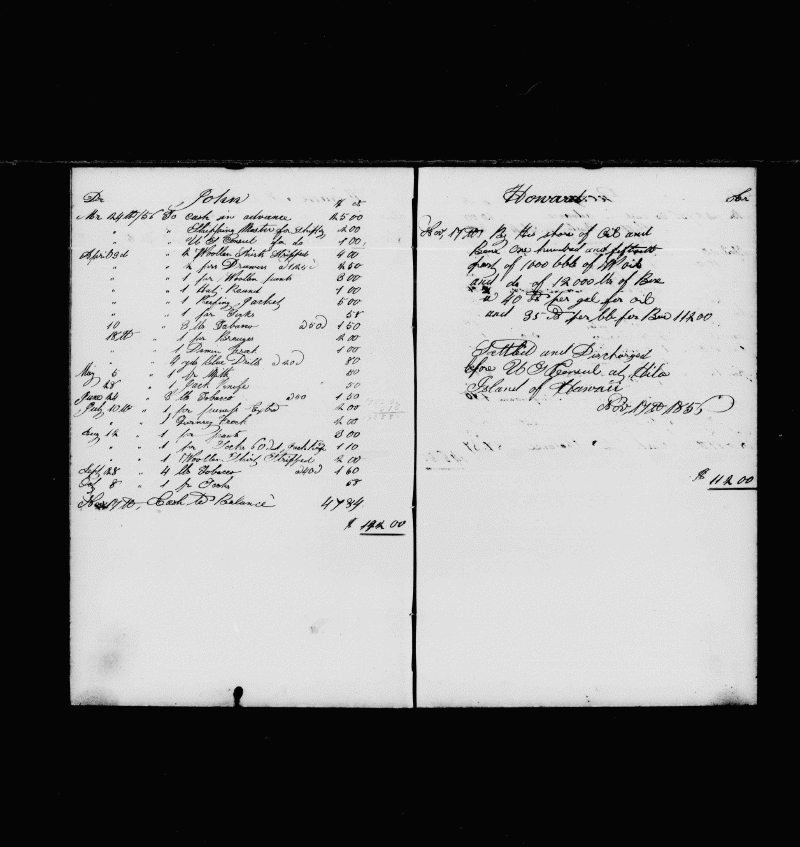 Dr John
$ ct
Mr 24th/56 To Cash in advance 25 00
" " Shipping Master for Shipping 2 00
" " U S Consul for do 1 00
April 3d " 2 Woollen Shirts Stripped 4 00
" " 2 prs Drawers a 125c 2 50
" " 1 pr Woollen pants 3 00
" " 1 Hat Round 1 00
" " 1 Reefing Jacket 5 00
" " 1 pr Socks 58
10 " 3 lb Tobacco a 50 1 50
18th " 1 pr Brogues 2 00
" " 1 Denim Frock 1 00
" " 4 yds blue Drills a 20 80
May 5 " 1 pr Mitts 50
" 28 " 1 Jack Knife 50
June 24 " 3 lb Tobacco a 50 1 50
July 10th " 1 pr pumps Extra 2 00
" " 1 Guernsey Frock 2 00
Aug 12 " 1 pr pants 3 00
" " 1 pr Socks 60 1 10
" " 1 Woollen Shirt Stripped 2 00
Sept 28 " 4 lb Tobacco a 40 1 60
Oct 8 " 1 pr Socks 58
Nov 17th, Cash to Balance 47 84
$ 112 00
Howard Cr
Nov, 17th By his share of Oil and
Bone One hundred and fiftieth
part of 1000 bbls of W oil
and do of 12000 lbs of Bone
a 40 cts per gal for oil
and 35 cts per lb for Bone 112 00
Settled and Discharged
before U S Consul at Hilo
Island of Hawaii
Nov, 17th 1856
$ 112 00